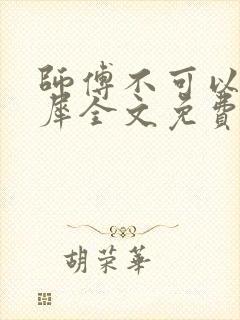 師傅不可以
犀全文免費
胡荣華